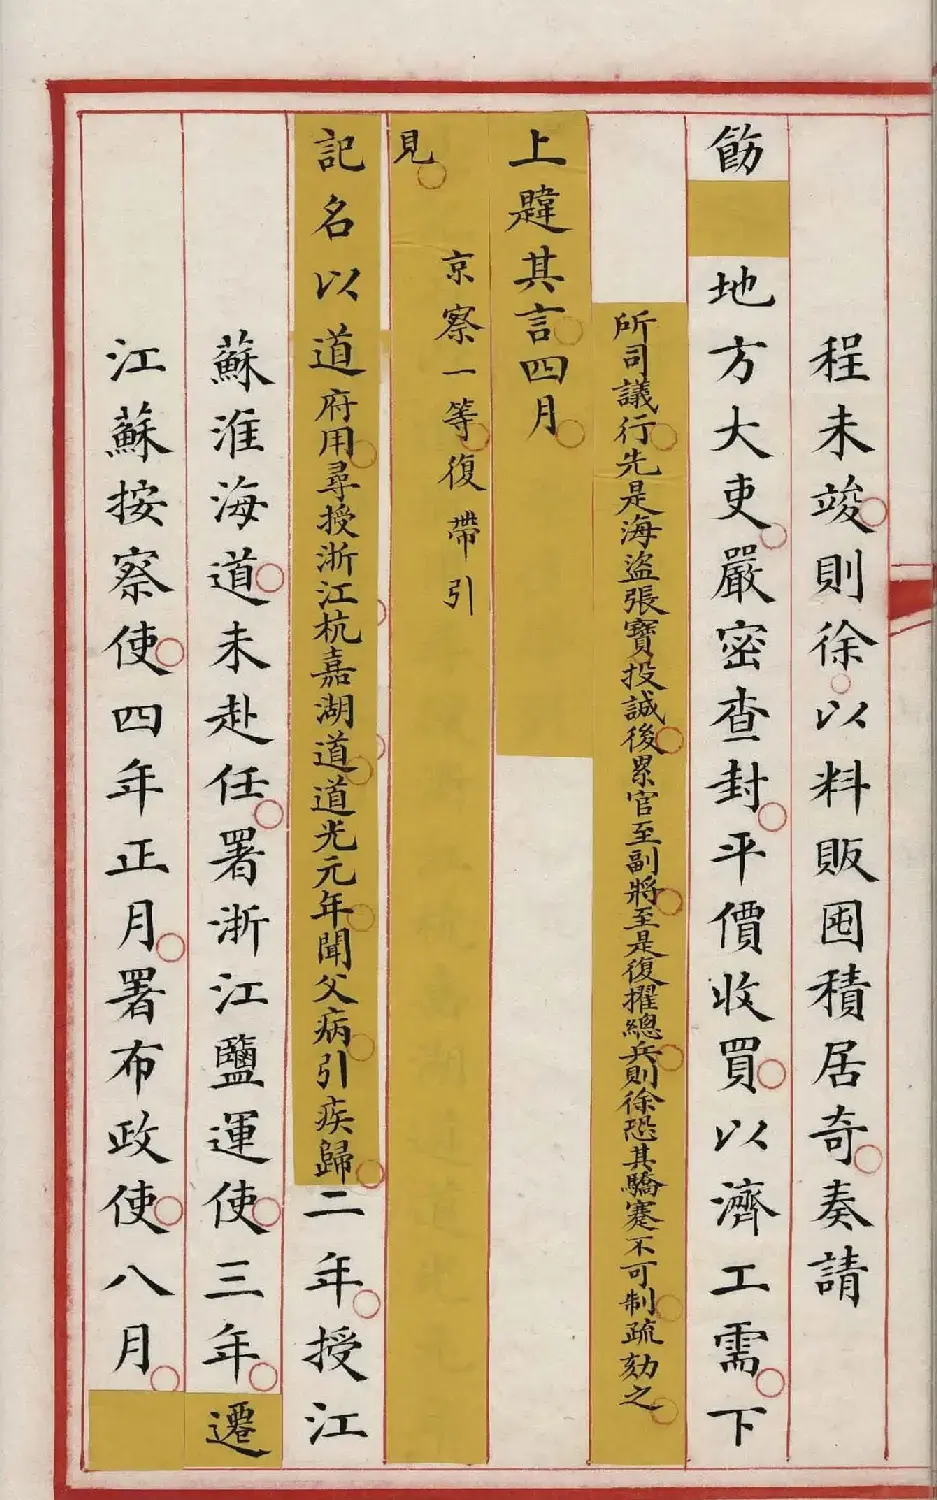 程未竣則徐以料販囤積居奇奏請
飭地方大吏嚴密查封平價收買以濟工需下
所司議行先是海盜張寶投誠後累官至副將至是復擢總兵則徐恐其驕蹇不可制疏劾之
上韙其言四月
京察一等復帶引
見
記名以道府用尋授浙江杭嘉湖道道光元年聞父病引疾歸二年授江
蘇淮海道未赴任署浙江鹽運使三年遷
江蘇按察使四年正月署布政使八月